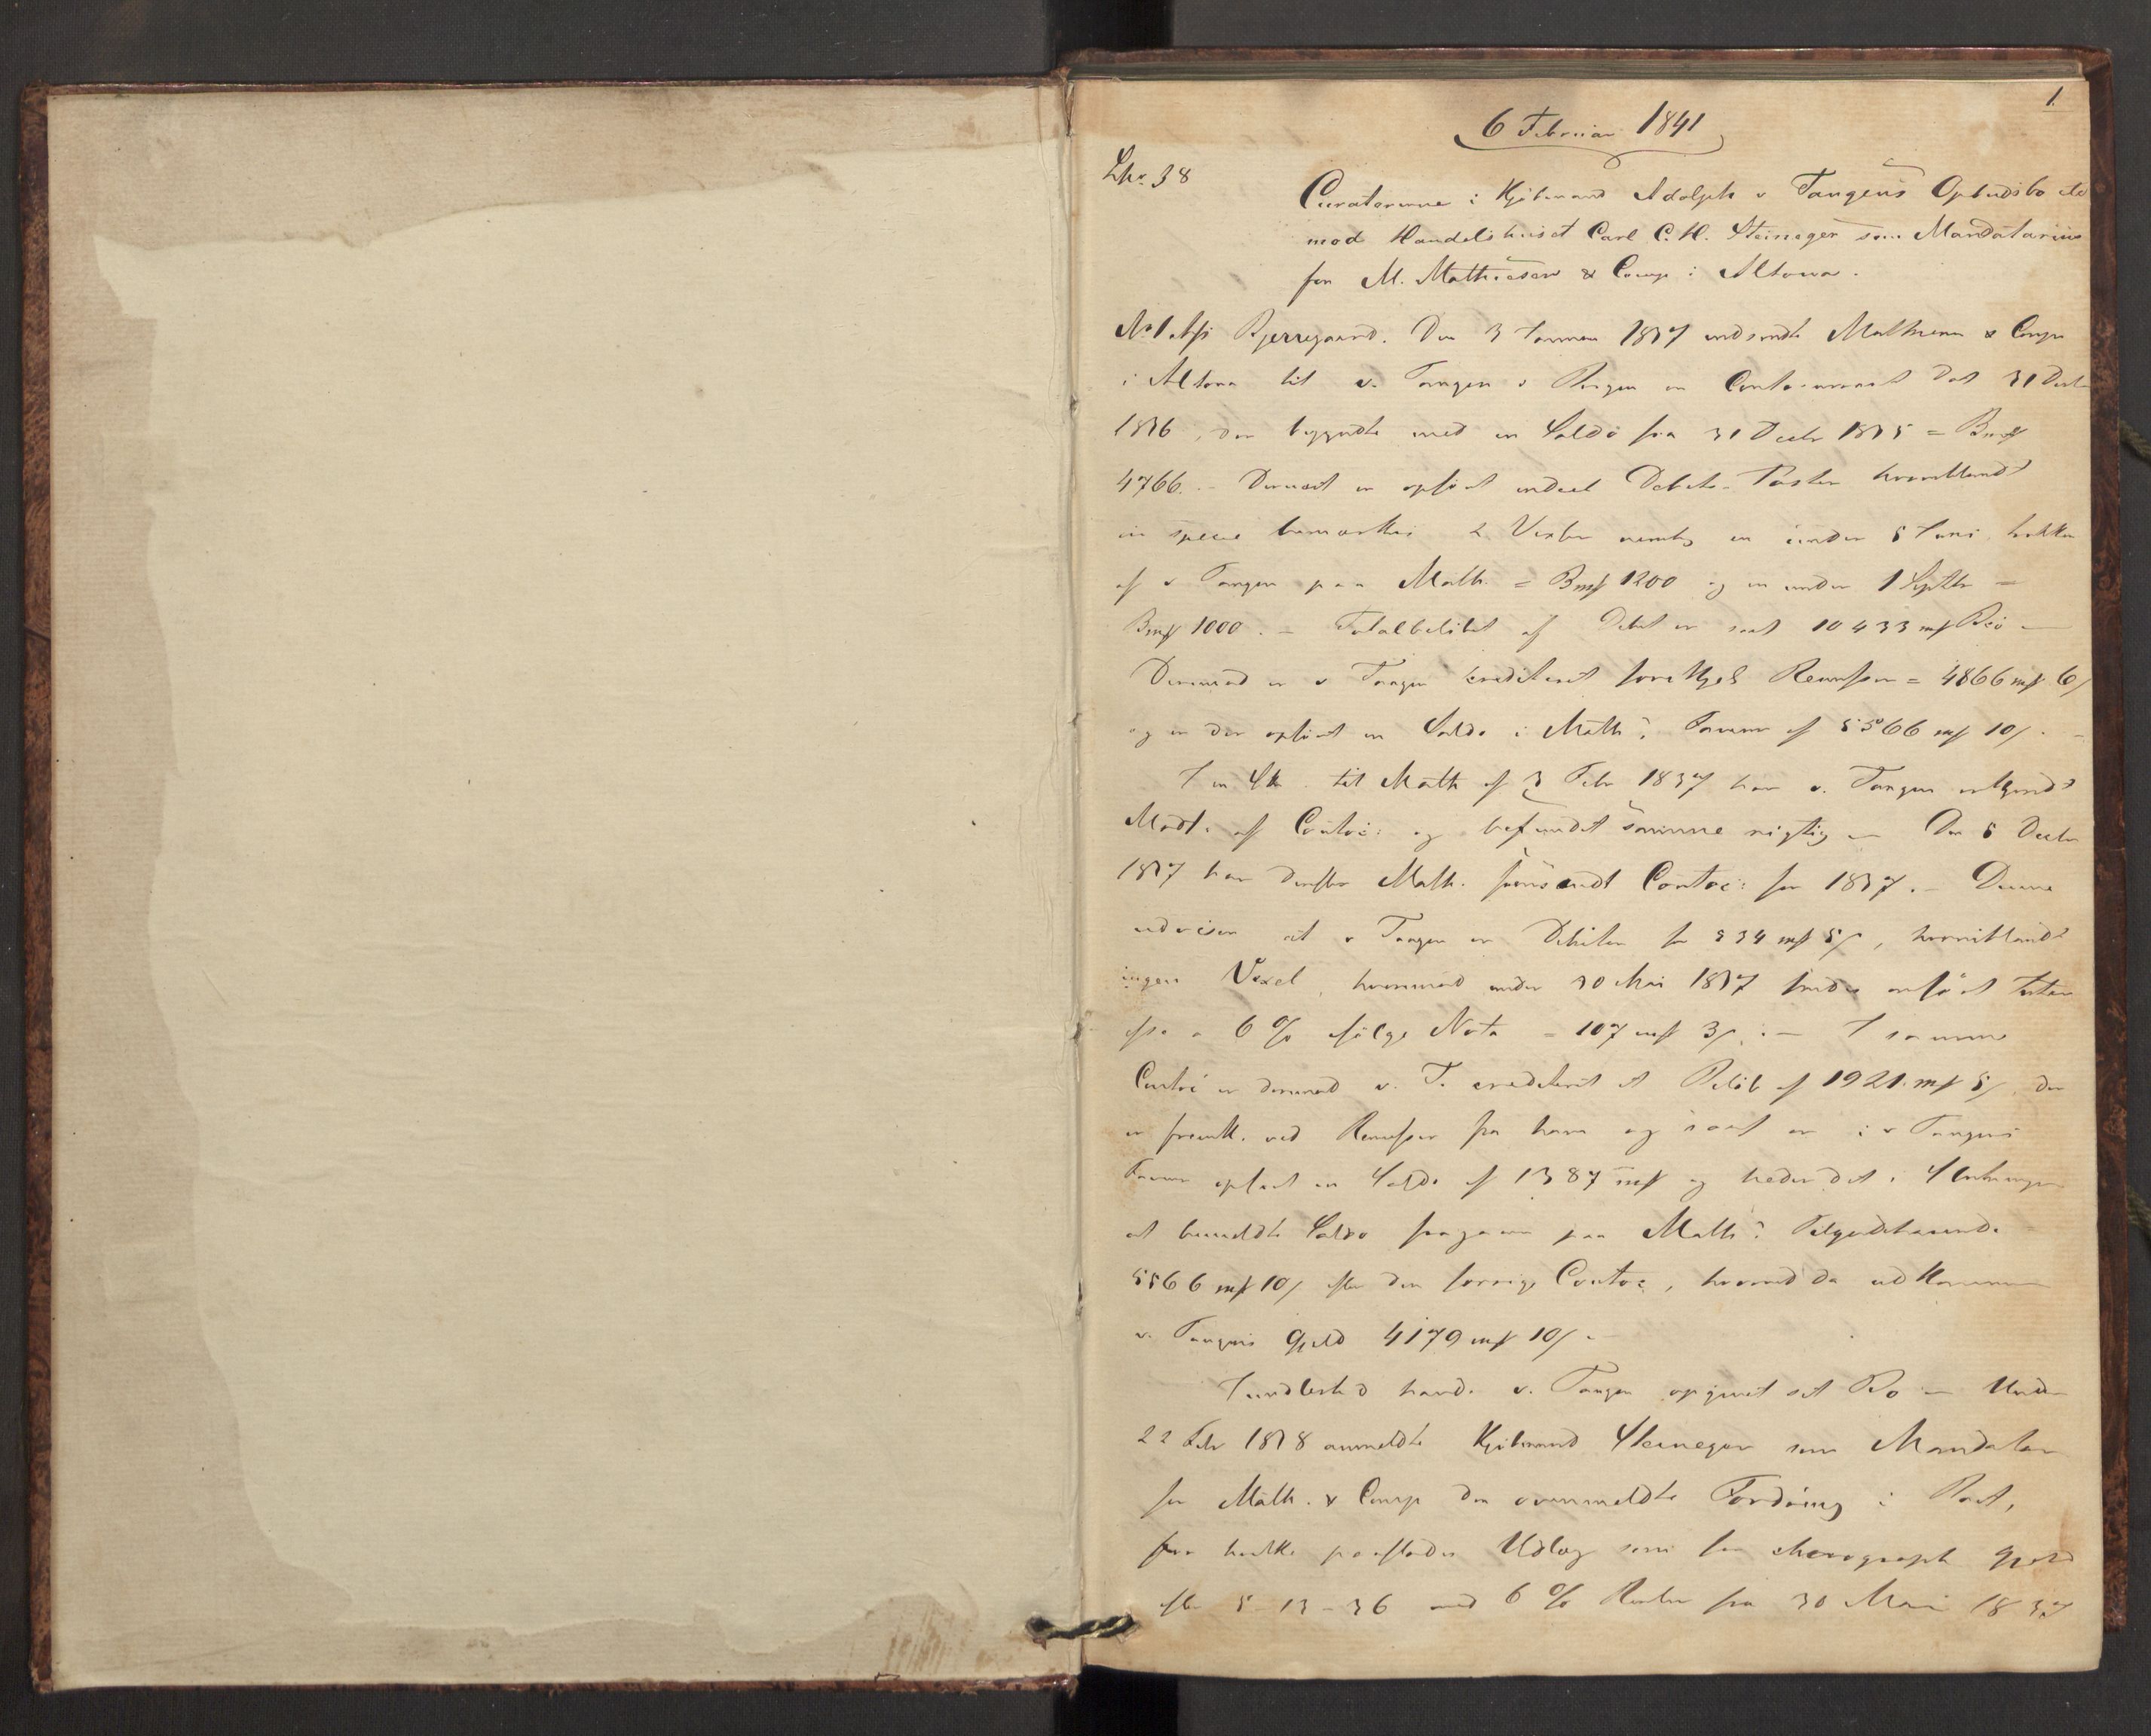 1.
6 Februar 1841
Lnr. 38
Curatorerne i Kjöbmand Adolph v Tangens Opbudsbo ctr
mod Handelshuset Carl C. H. Steineger som Mandatarius
for M. Mathiesen & Comp i Altona.
No 1 Ass Bjerregaard. Den 3 Januar 1837 indsendte Mathiesen & Comp
i Altona til v. Tangen i Bergen en Contocurant dat 31 Decbr
1836, der begyndte med en Saldo fra 31 Decbr 1835 = Bmk
4766. - Dernæst er opfört endeel Debets-Poster hvoriblandt
in specie bemærkes 2 Vexler nemlig en under 5 Juni trukken
af v Tangen paa Math. = Bmk 1200 og en under 1 Septbr =
Bmk 1000. - Totalbelöbet af Debet er saal 10433 mk Bco -
Derimod er v Tangen krediteret forskjel Remisser = 4866 mk 6/
og er der opfört en Saldo i Maths Faveur af 5566 mk 10/. -
I en Skr. til Math af 3 Febr 1837 har v. Tangen erkjendt
Modt. af Contoc: og befundet samme rigtig - Den 5 Decbr
1837 har derefter Math. fremsendt Contoc: for 1837. - Denne
udviser at v Tangen er Debiteret for 534 mk 5/, hvoriblandt
ingen Vexel, hvorimod under 30 Mai 1837 findes anfört Renter
 a 6 % ifölge Nota = 107 mk 3/. - I samme
Contoc er derimod v. T. crediteret et Belöb af 1921 mk 5/ der
er fremk. ved Remisser fra ham og saal er i v Tangens
Faveur opfört en Saldo af 1387 mk og heder det i Slutningen
at bemeldte Saldo fragaaer paa Maths Tilgodehavende
5566 mk 10/ efter den forrige Contoc, hvorved da udkommer
v. Tangens Gjeld 4179 mk 10/. -
Imidlertid havde v. Tangen opgivet sit Bo - Under
22 Febr 1838 anmeldte Kjöbmand Steineger som Mandatar
for Math. & Comp den ovenmeldte Fordring i Boet,
for hvilke paastodes Udlæg som for chirograph Gjeld
efter 5-13-36 med 6 % Renter fra 30 Mai 1837